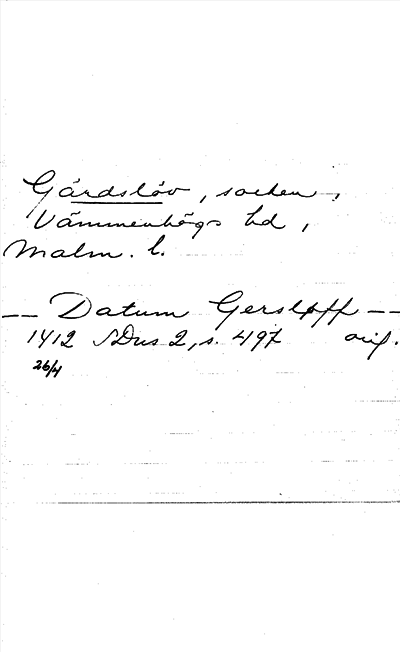 Gärdslöv, socken,
Vämmenhögs hd,
Malm. l.
— Datum Gersløff —
1412 SDns 2, s. 497 orig.
26/4